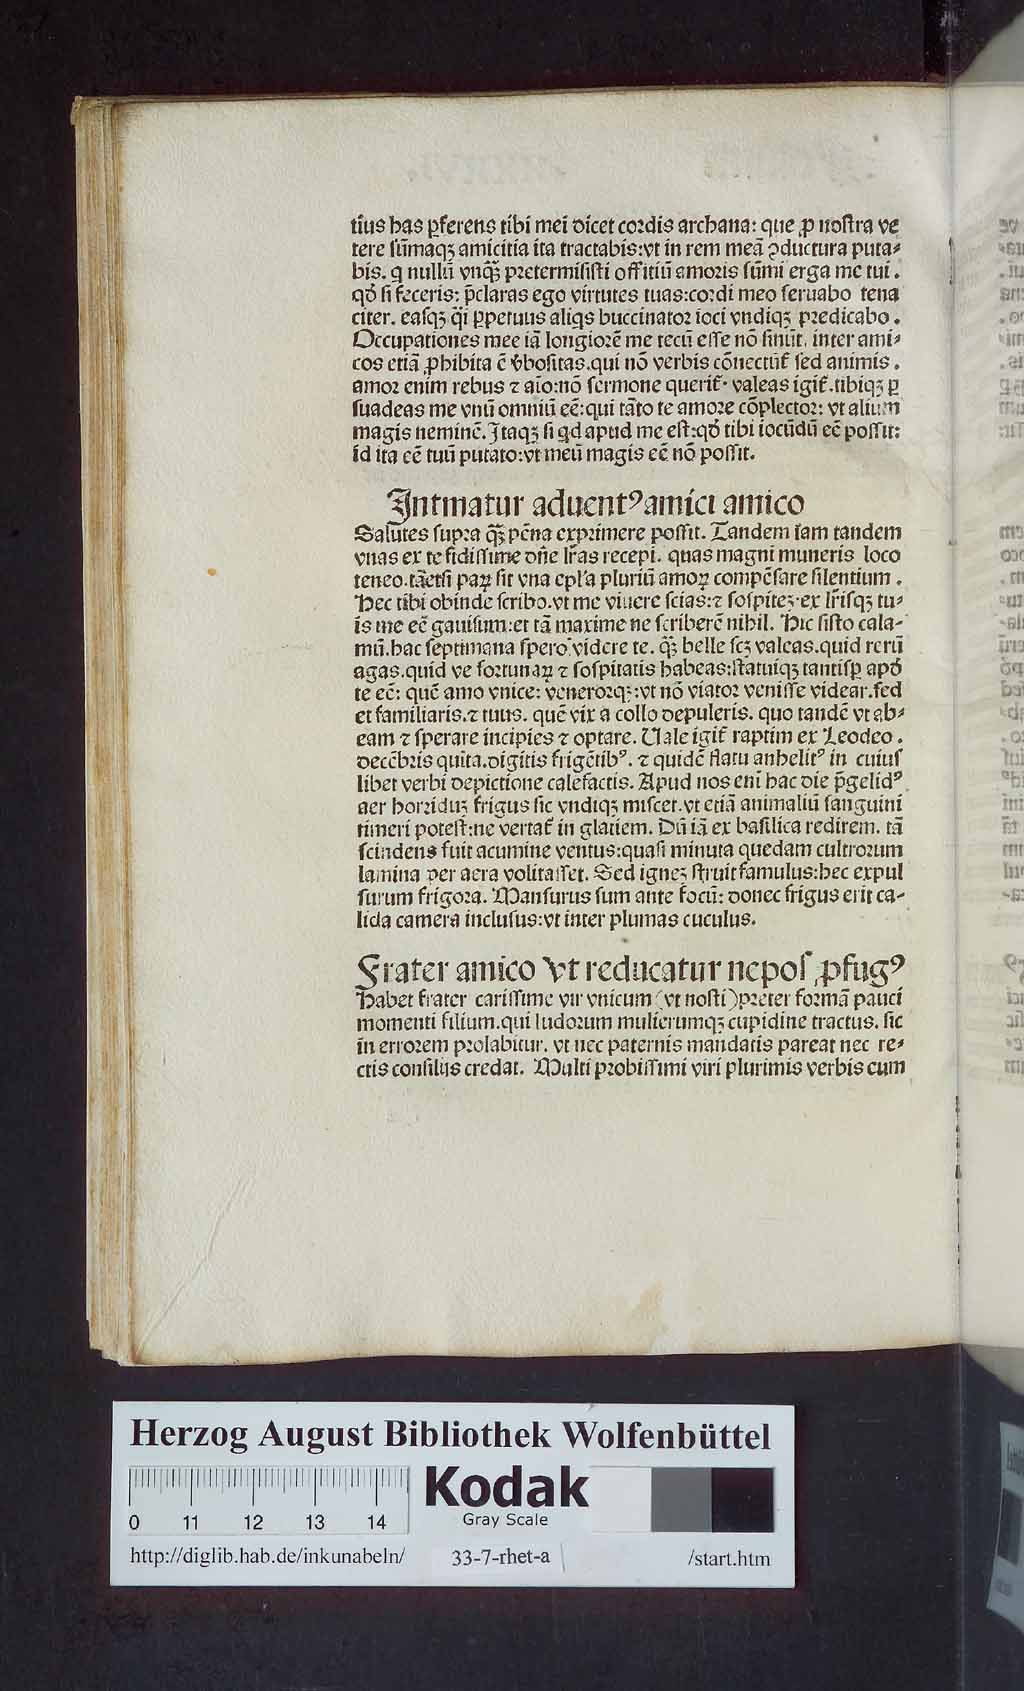 tius has ꝑferens tibi mei dicet cordis archana: que ꝓ nostra ve
tere sūmaqꝫ amicitia ita tractabis:vt in rem meā ꝯductura puta⸗
bis. ꝙ nullū vnqꝫ̄ pretermisisti offitiū amoris sūmi erga me tui .
qđ si feceris: p̄claras ego virtutes tuas:cordi meo seruabo tena
citer. easqꝫ q̄i ꝑpetuus aliqs buccinator ioci vndiqꝫ predicabo .
Occupationes mee iā longiorē me tecū esse nō sinūt. inter ami⸗
cos etiā ꝓhibita ē v̄bositas.qui nō verbis cōnectūt̄ sed animis .
amor enim rebus ⁊ aīo:nō sermone querit̄. valeas igit̄.tibiqꝫ ꝑ
suadeas me vnū omniū eē:qui tāto te amore cōplector: vt alium
magis neminē. Itaqꝫ si qd apud me est:qđ tibi iocūdū eē possit:
id ita eē tuū putato:vt meū magis eē nō possit.
Intmatur aduentꝰ amici amico
Salutes supra qꝫ̄ pēna exprimere possit. Tandem iam tandem
vnas ex te fidissime dn̄e lr̄as recepi. quas magni muneris loco
teneo.tāetsi parꝝ sit vna epl'a pluriū amorꝝ compēsare silentium .
Hec tibi obinde scribo.vt me viuere scias:⁊ sospitez.ex lr̄isqꝫ tu⸗
is me eē gauisum:et tā maxime ne scriberē nihil. Hic sisto cala⸗
mū.hac septimana spero videre te. qꝫ̄ belle scꝫ valeas.quid rerū
agas.quid ve fortunaꝝ ⁊ sospitatis habeas:statuiqꝫ tantisꝑ apđ
te eē: quē amo vnice: venerorqꝫ:vt nō viator venisse videar.sed
et familiaris.⁊ tuus. quē vix a collo depuleris. quo tandē vt ab⸗
eam ⁊ sperare incipies ⁊ optare. Uale igit̄ raptim ex Leodeo .
decēbris quīta.digitis frigētibꝰ. ⁊ quidē flatu anhelitꝰ in cuius
libet verbi depictione calefactis. Apud nos enī hac die p̄gelidꝰ
aer horriduꝫ frigus sic vndiqꝫ miscet.vt etiā animaliū sanguini
timeri potest:ne vertat̄ in glatiem. Dū iā ex basilica redirem. tā
scindens fuit acumine ventus:quasi minuta quedam cultrorum
lamina per aera volitasset. Sed igneꝫ struit famulus:hec expul
surum frigora. Mansurus sum ante focū: donec frigus erit ca⸗
lida camera inclusus:vt inter plumas cuculus.
Frater amico vt reducatur nepos ꝓfugꝰ
Habet frater carissime vir vnicum (vt nosti) preter formā pauci
momenti filium.qui ludorum mulierumqꝫ cupidine tractus. sic
in errorem prolabitur. vt nec paternis mandatis pareat nec re⸗
ctis consiliis credat. Multi probissimi viri plurimis verbis cum
Herzog August Bibliothek Wolfenbüttel
Kodak
Gray Scale
0 11 12 13 14
http://diglib.hab.de/inkunabeln/ 33-7-rhet-a /start.htm